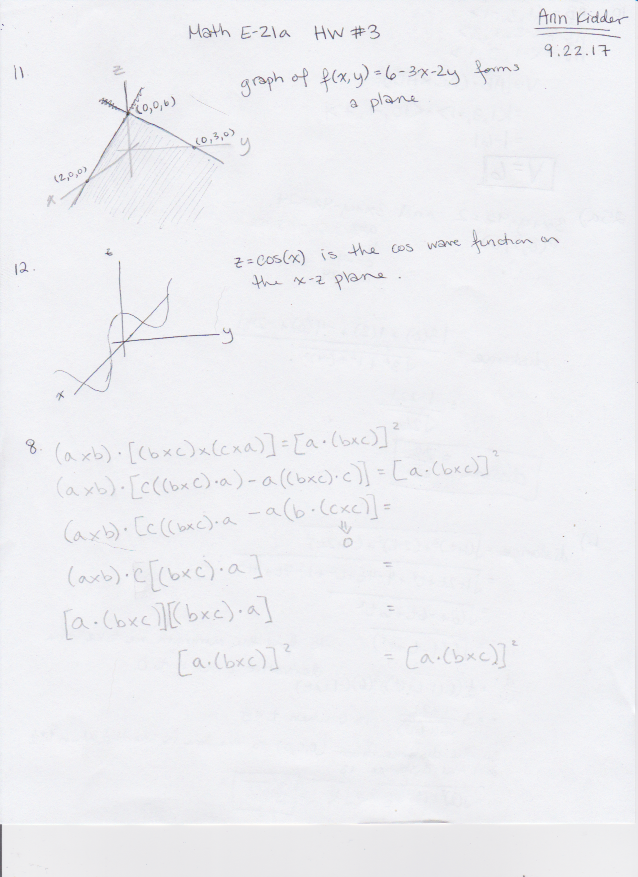 Math E-21a HW #3
Ann Kidder
9.22.17
11
z
(0,0,6)
(0,3,0)
y
(2,0,0)
x
graph of f(x,y)=6-3x-2y forms
a plane
12.
z
y
x
z=cos(x) is the cos wave function on
the x-z plane.
8. (a×b)·[(b×c)×(c×a)]=[a·(b×c)]²
(a×b)·[c((b×c)·a)-a((b×c)·c)]=[a·(b×c)]²
(a×b)·[c((b×c)·a -a(b·(c×c)]=
⇓
0
(a×b)·c[(b×c)·a] =
[a·(b×c)][(b×c)·a] =
[a·(b×c)]² = [a·(b×c)]²